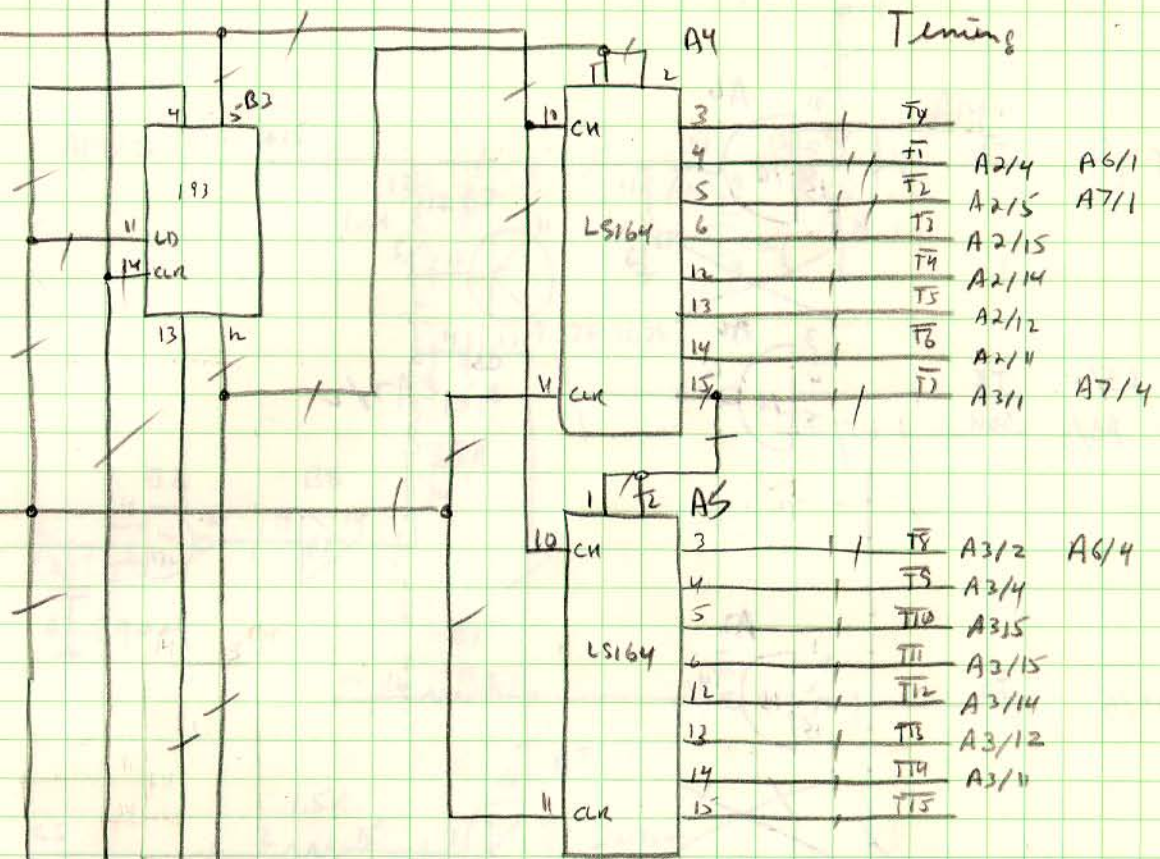 Timing
A4
1 2
B3
4 5
193
11 LD
14 CLR
13 12
10 CK
LS164
11 CLR
3
4 T1 A2/4 A6/1
5 T2 A2/5 A7/1
6 T3 A2/15
12 T4 A2/14
13 T5 A2/12
14 T6 A2/11
15 T7 A3/1 A7/4
1 2 A5
10 CK
LS164
11 CLR
3 T8 A3/2 A6/4
4 T9 A3/4
5 T10 A315
6 T11 A3/15
12 T12 A3/14
13 T13 A3/12
14 T14 A3/11
15 T15